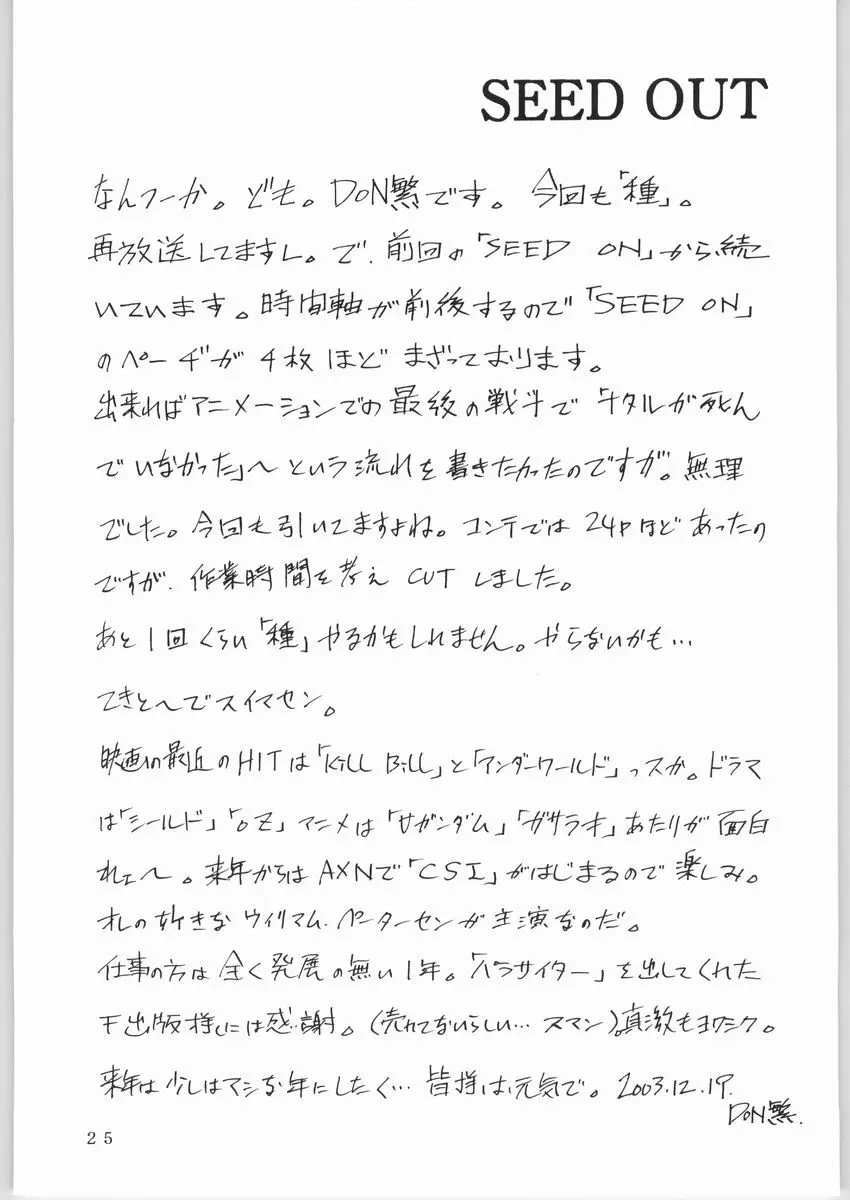 SEED OUT
なんつーか。ども。DON繁です。今回も「種」。
再放送してますし。で、前回の「SEED ON」から続
いています。時間軸が前後するので「SEED ON」
のページが4枚ほどまざっております。
出来ればアニメーションでの最後の戦斗で「ナタルが死ん
でいなかった」〜という流れを書きたかったのですが。無理
でした。今回も引いてますよね。コンテでは24Pほどあったの
ですが、作業時間を考えCUTしました。
あと1回くらい「種」やるかもしれません。やらないかも…
てきと〜でスイマセン。
映画の最近のHITは「Kill Bill」と「アンダーワールド」っスか。ドラマ
は「シールド」「OZ」アニメは「サガンダム」「ガサラキ」あたりが面白
れェ〜。来年からはAXNで「CSI」がはじまるので楽しみ。
オレの好きなウィリアム.ペーターセンが主演なのだ。
仕事の方は全く発展の無い1年。「パラサイター」を出してくれた
出版様には感謝。(売れてないらしい…スマン)。もヨロシク。
来年は少しはマシな年にしたく…皆様は元気で。2003.12.19.
DON繁.
25